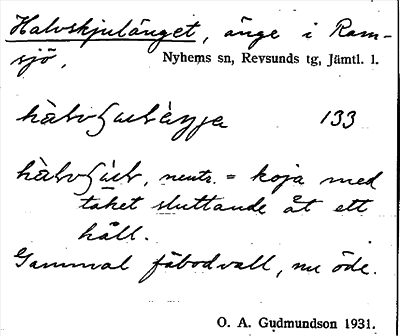 Halvskjulänget, änge i Ram-
sjö. Nyhems sn, Revsunds tg, Jämtl. l.
133
neutr. = koja med
taket sluttande åt ett
håll.
Gammal fäbodvall, nu öde.
O. A. Gudmundson 1931.